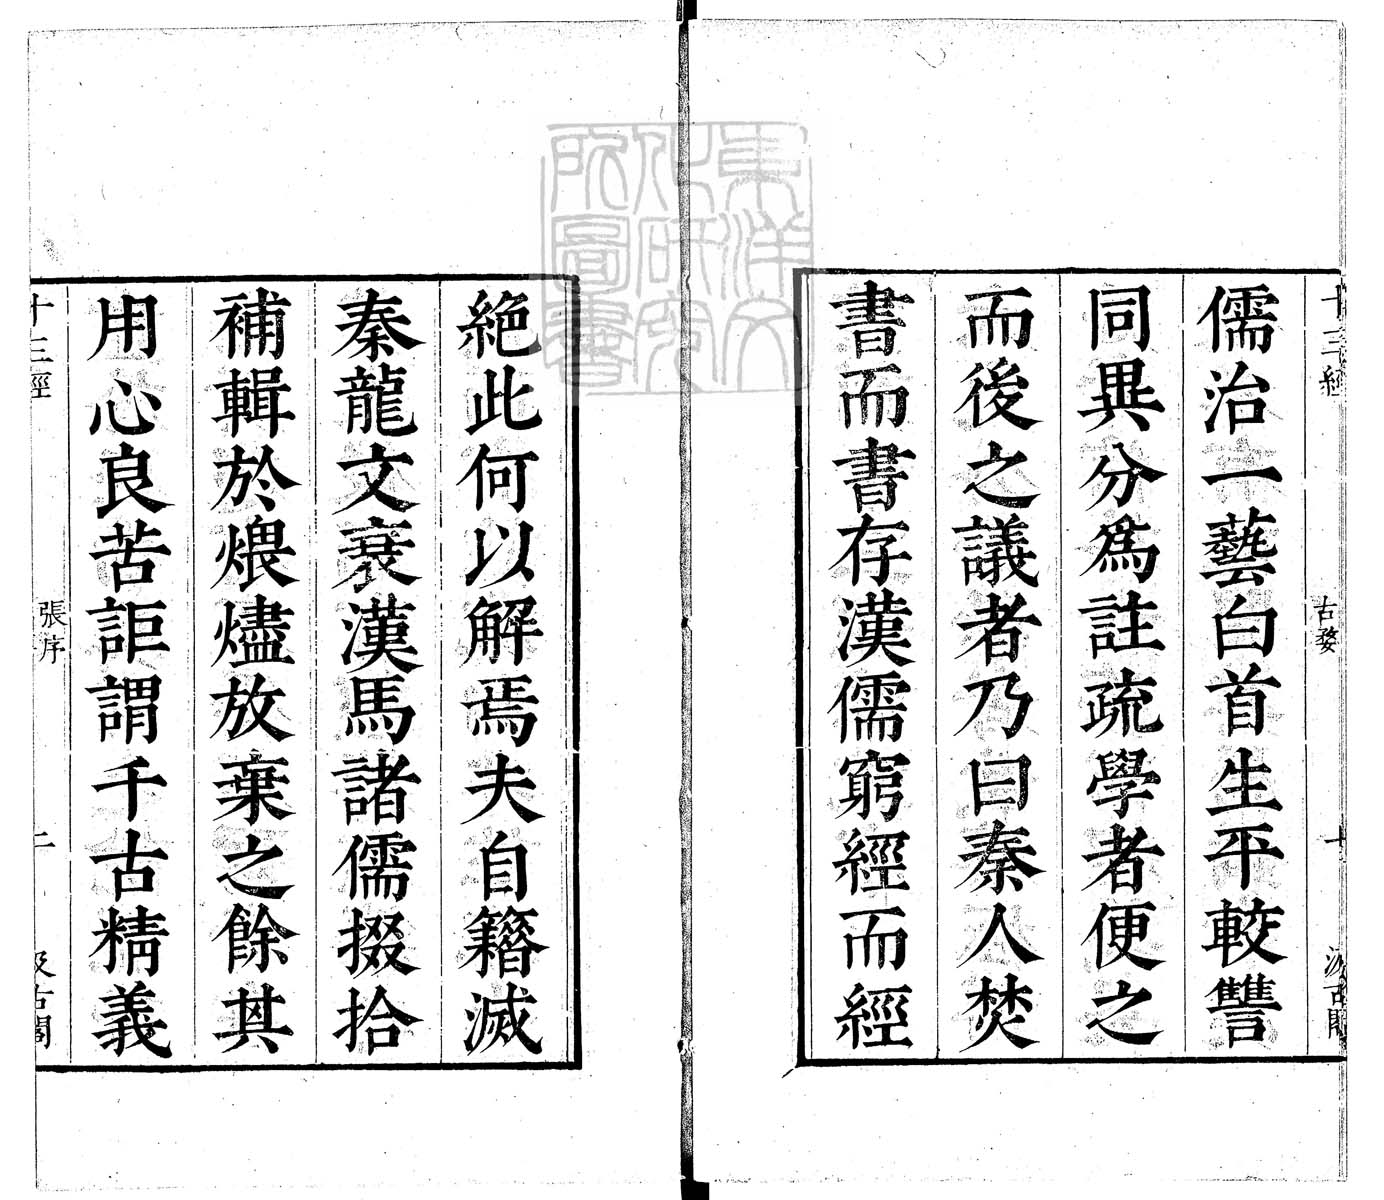 十三經
古婺
汲古閣
儒治一藝白首生平較讐
同異分爲註疏學者便之
而後之議者乃曰秦人焚
書而書存漢儒窮經而經
絕此何以解焉夫自籍滅
秦龍文衰漢馬諸儒掇拾
補輯於煨燼放棄之餘其
用心良苦詎謂千古精義
十三經
張序
二
汲古閣
東洋文
化研究
所圖書